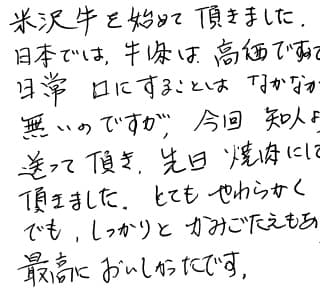 米沢牛を始めて頂きました.
日本では,牛肉は高価ですので
日常 口にすることは なかなか
無いのですが,今回 知人よ
送って頂き,先日 焼肉にし
頂きました.とても やわらかく
でも,しっかりと かみごたえもあ
最高に おいしかったです,